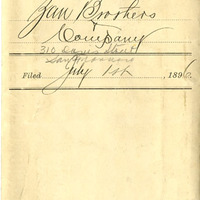 Zan Brothers
&
Company
310 Davis Street
San Francisco
Filed July 1st, 1896.